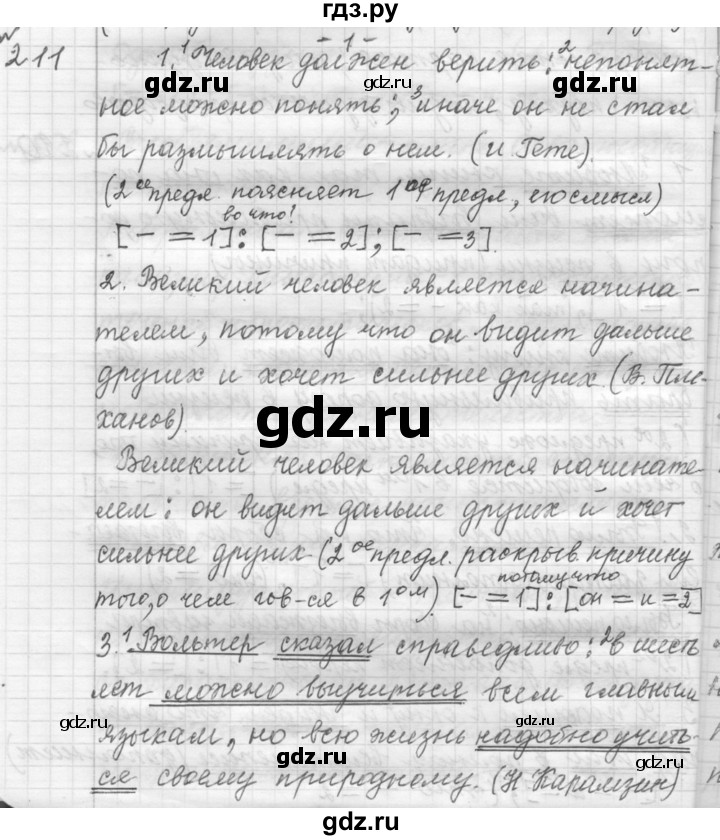 гдз.ру
211 1. ¹Человек должен верить: ²непонят-
ное можно понять; ³иначе он не стал
бы размышлять о нем. (И. Гёте).
(2ое предл. поясняет 1ое предл, его смысл)
во что?
[– = 1]: [– = 2]; [– = 3].
2. Великий человек является начина-
телем, потому что он видит дальше
других и хочет сильнее других (В. Пле-
ханов).
Великий человек является начинате-
лем: он видит дальше других и хочет
сильнее других (2ое предл. раскрыв. причину
того, о чем гов-ся в 1ом)
потому что
[– = 1]: [он = и = 2]
3. ¹Вольтер сказал справедливо: ²в шесть
лет можно выучиться всем главным
языкам, но всю жизнь надобно учить-
ся своему природному. (Н Карамзин)
gdz.ru
gdz.ru
gdz.ru
gdz.ru
gdz.ru
gdz.ru
gdz.ru
gdz.ru
gdz.ru
gdz.ru
gdz.ru
gdz.ru
gdz.ru